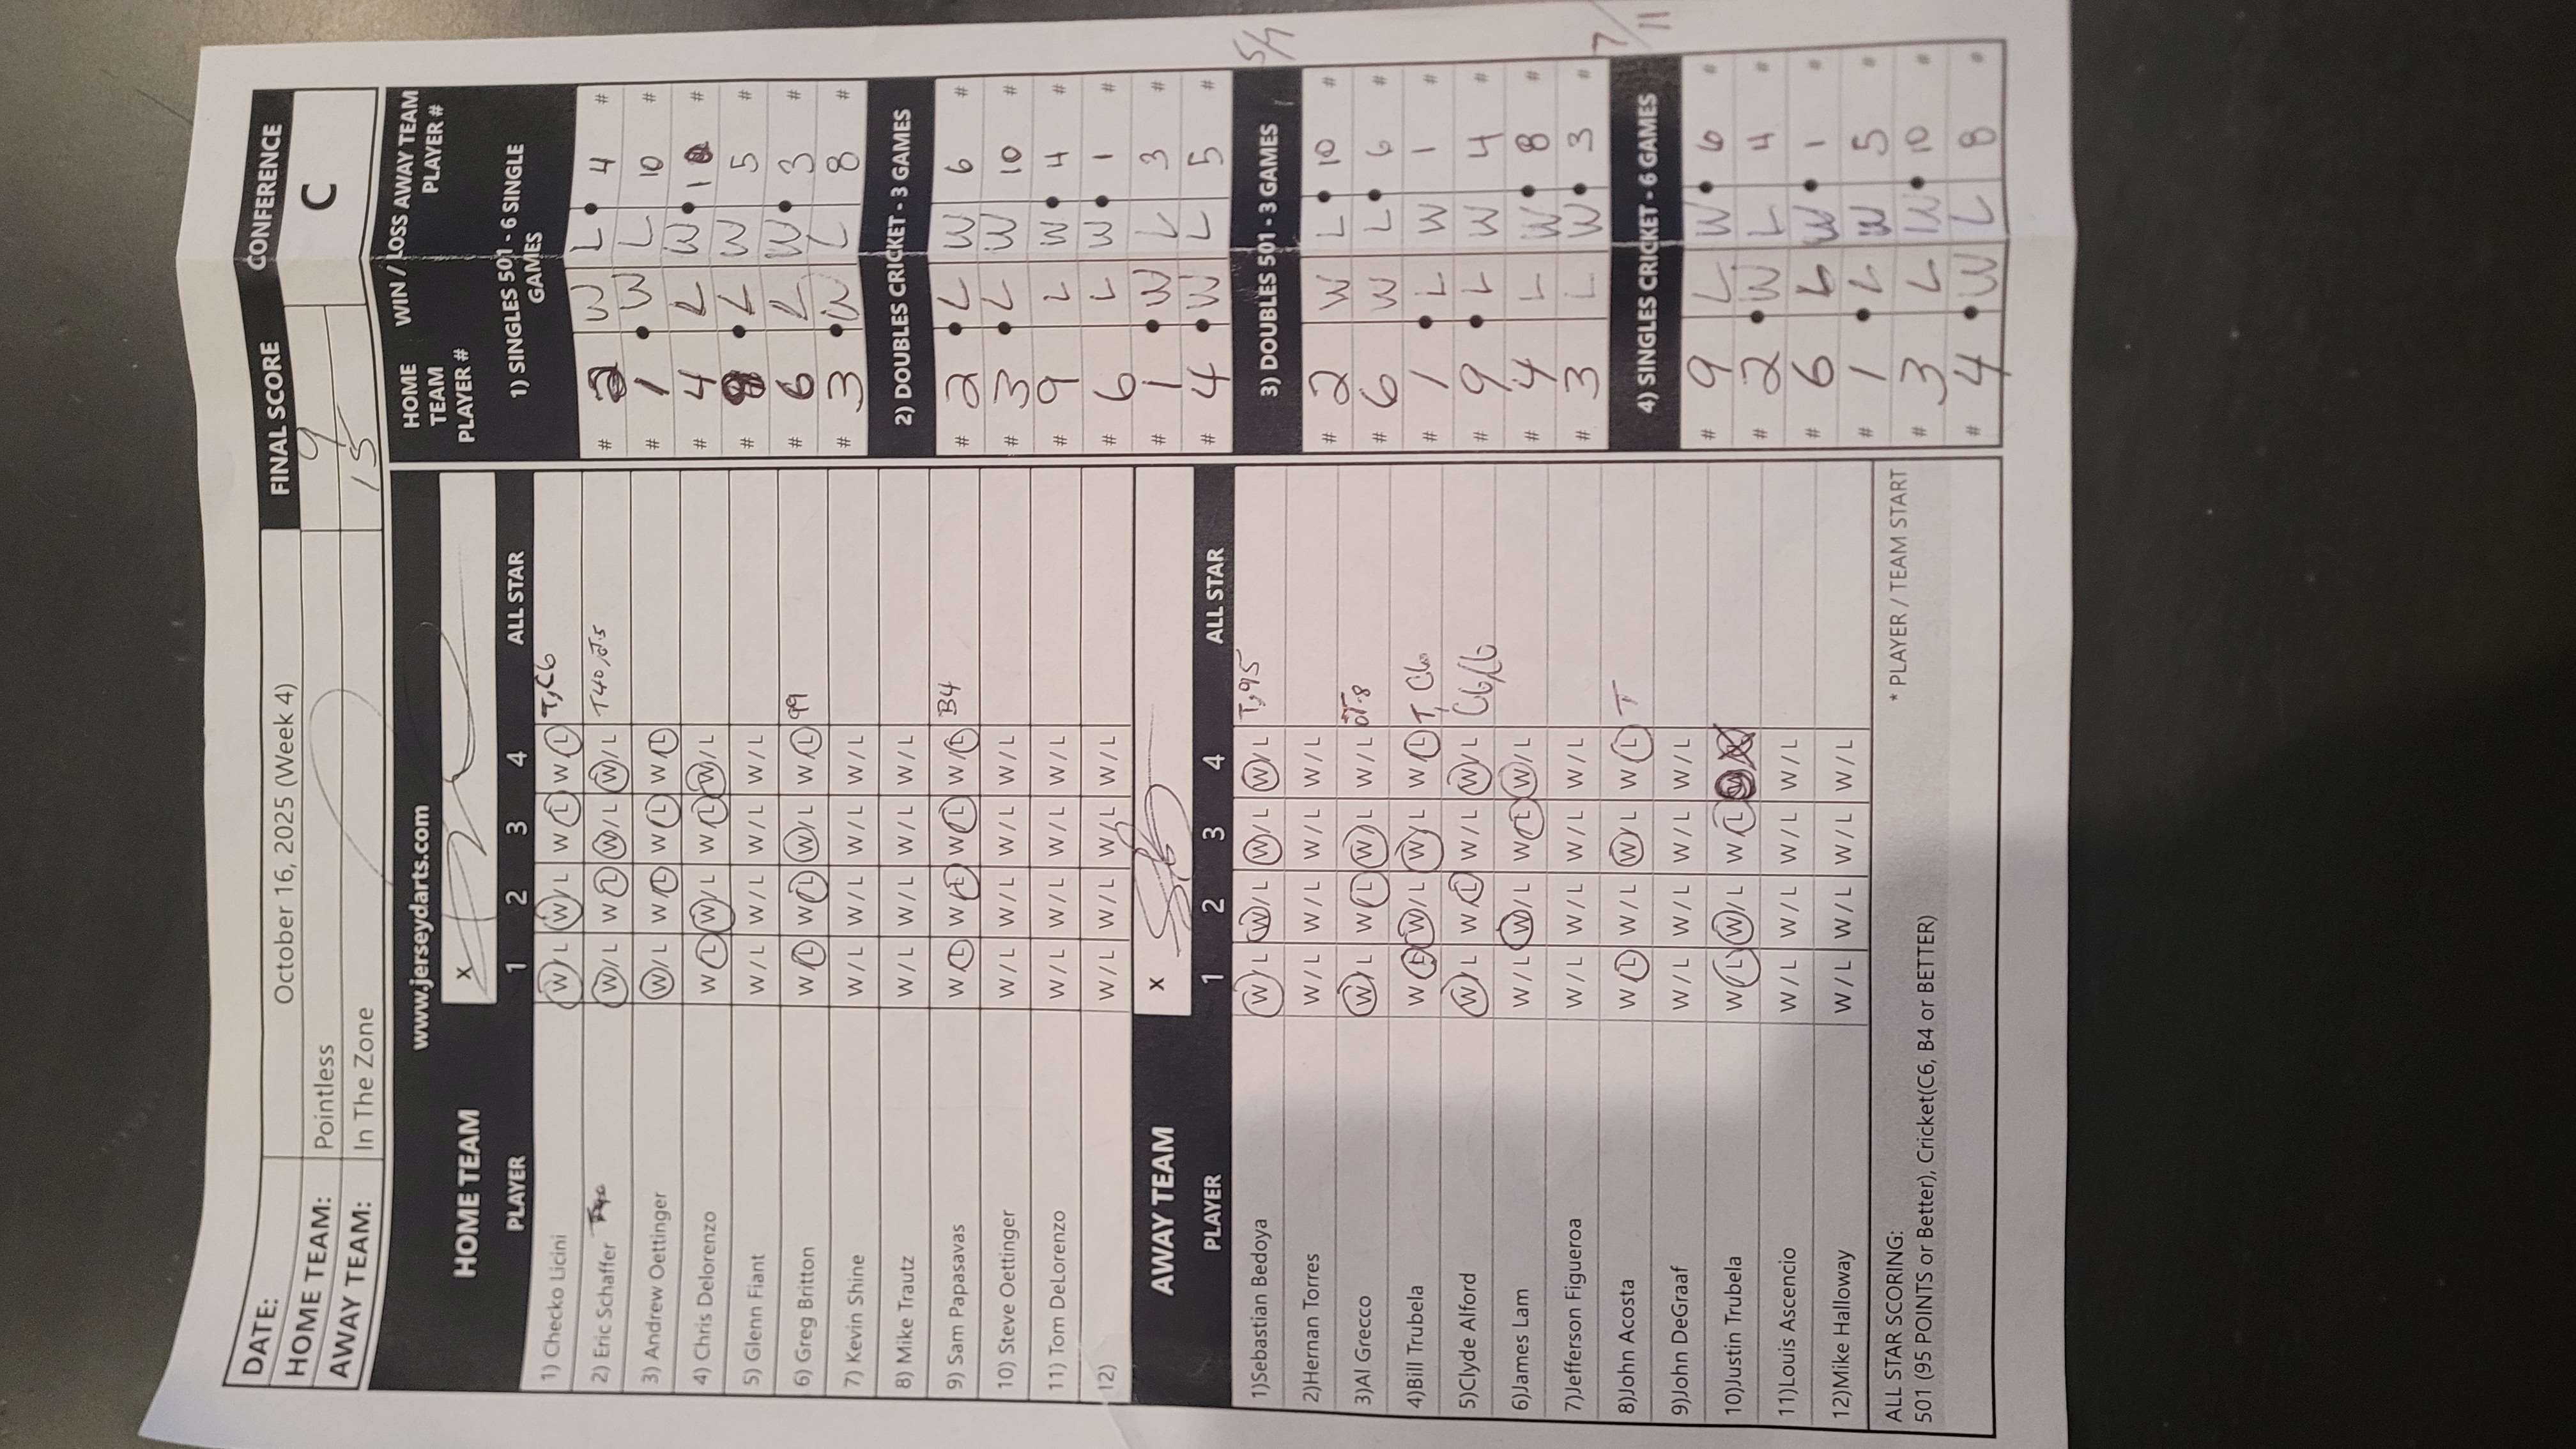 DATE: October 16, 2025 (Week 4) FINAL SCORE CONFERENCE
HOME TEAM: Pointless 9 C
AWAY TEAM: In The Zone 15
www.jerseydarts.com
HOME TEAM X
PLAYER 1 2 3 4 ALL STAR
1) Checko Licini W/L W/L W/L W/L T, C6
2) Eric Schaffer W/L W/L W/L W/L T40
3) Andrew Oettinger W/L W/L W/L W/L
4) Chris Delorenzo W/L W/L W/L W/L
5) Glenn Fiant W/L W/L W/L W/L
6) Greg Britton W/L W/L W/L W/L 99
7) Kevin Shine W/L W/L W/L W/L
8) Mike Trautz W/L W/L W/L W/L
9) Sam Papasavas W/L W/L W/L W/L B4
10) Steve Oettinger W/L W/L W/L W/L
11) Tom DeLorenzo W/L W/L W/L W/L
12) W/L W/L W/L W/L
AWAY TEAM X
PLAYER 1 2 3 4 ALL STAR
1)Sebastian Bedoya W/L W/L W/L W/L T,95
2)Hernan Torres W/L W/L W/L W/L
3)Al Grecco W/L W/L W/L W/L
4)Bill Trubela W/L W/L W/L W/L T, C6
5)Clyde Alford W/L W/L W/L W/L C6/C6
6)James Lam W/L W/L W/L W/L
7)Jefferson Figueroa W/L W/L W/L W/L
8)John Acosta W/L W/L W/L W/L T
9)John DeGraaf W/L W/L W/L W/L
10)Justin Trubela W/L W/L W/L
11)Louis Ascencio W/L W/L W/L W/L
12)Mike Halloway W/L W/L W/L W/L
ALL STAR SCORING: * PLAYER / TEAM START
501 (95 POINTS or Better), Cricket(C6, B4 or BETTER)
HOME TEAM PLAYER # WIN / LOSS AWAY TEAM PLAYER #
1) SINGLES 501 - 6 SINGLE GAMES
# 2 W L • 4 #
# 1 • W L 10 #
# 4 L W • 1 #
# • L W 5 #
# 6 L W • 3 #
# 3 • W L 8 #
2) DOUBLES CRICKET - 3 GAMES
# 2 • L W 6 #
# 3 • L W 10 #
# 9 L W • 4 #
# 6 L W • 1 #
# 1 • W L 3 #
# 4 • W L 5 #
5/7
3) DOUBLES 501 - 3 GAMES
# 2 W L • 10 #
# 6 W L • 6 #
# 1 • L W 1 #
# 9 • L W 4 #
# 4 L W • 8 #
# 3 L W • 3 #
7/11
4) SINGLES CRICKET - 6 GAMES
# 9 L W • 6 #
# 2 • W L 4 #
# 6 L W • 1 #
# 1 • L W 5 #
# 3 L W • 10 #
# 4 • W L 8 #